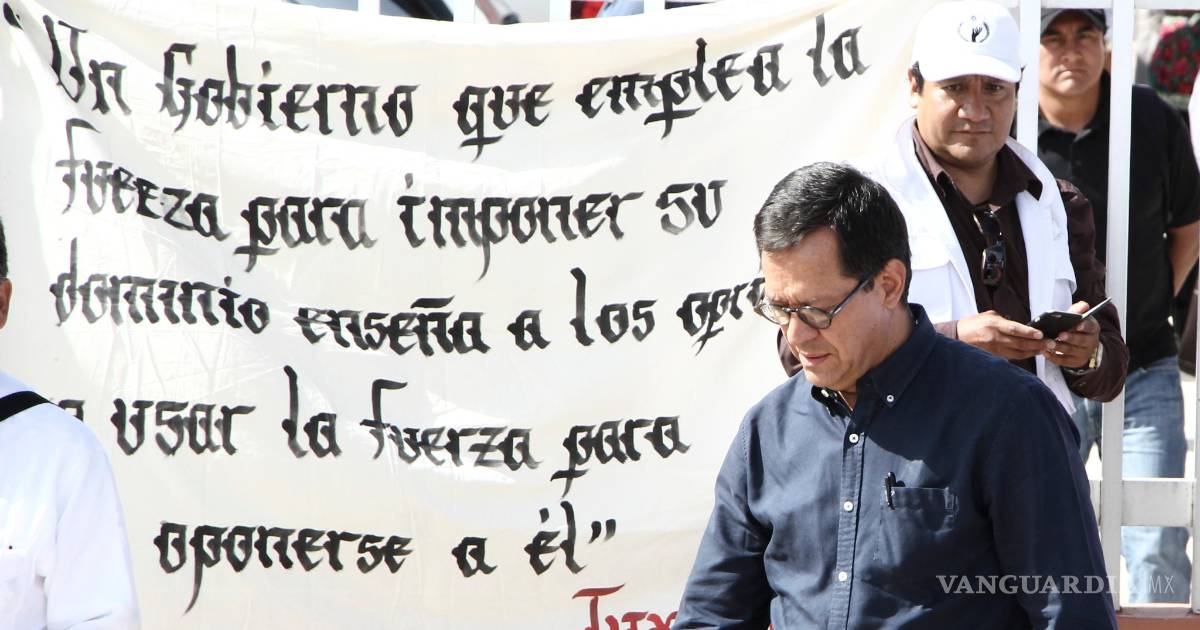 "Un Gobierno que emplea la
fuerza para imponer su
dominio enseña a los
a usar la fuerza para
oponerse a él"
VANGUARDIA MX